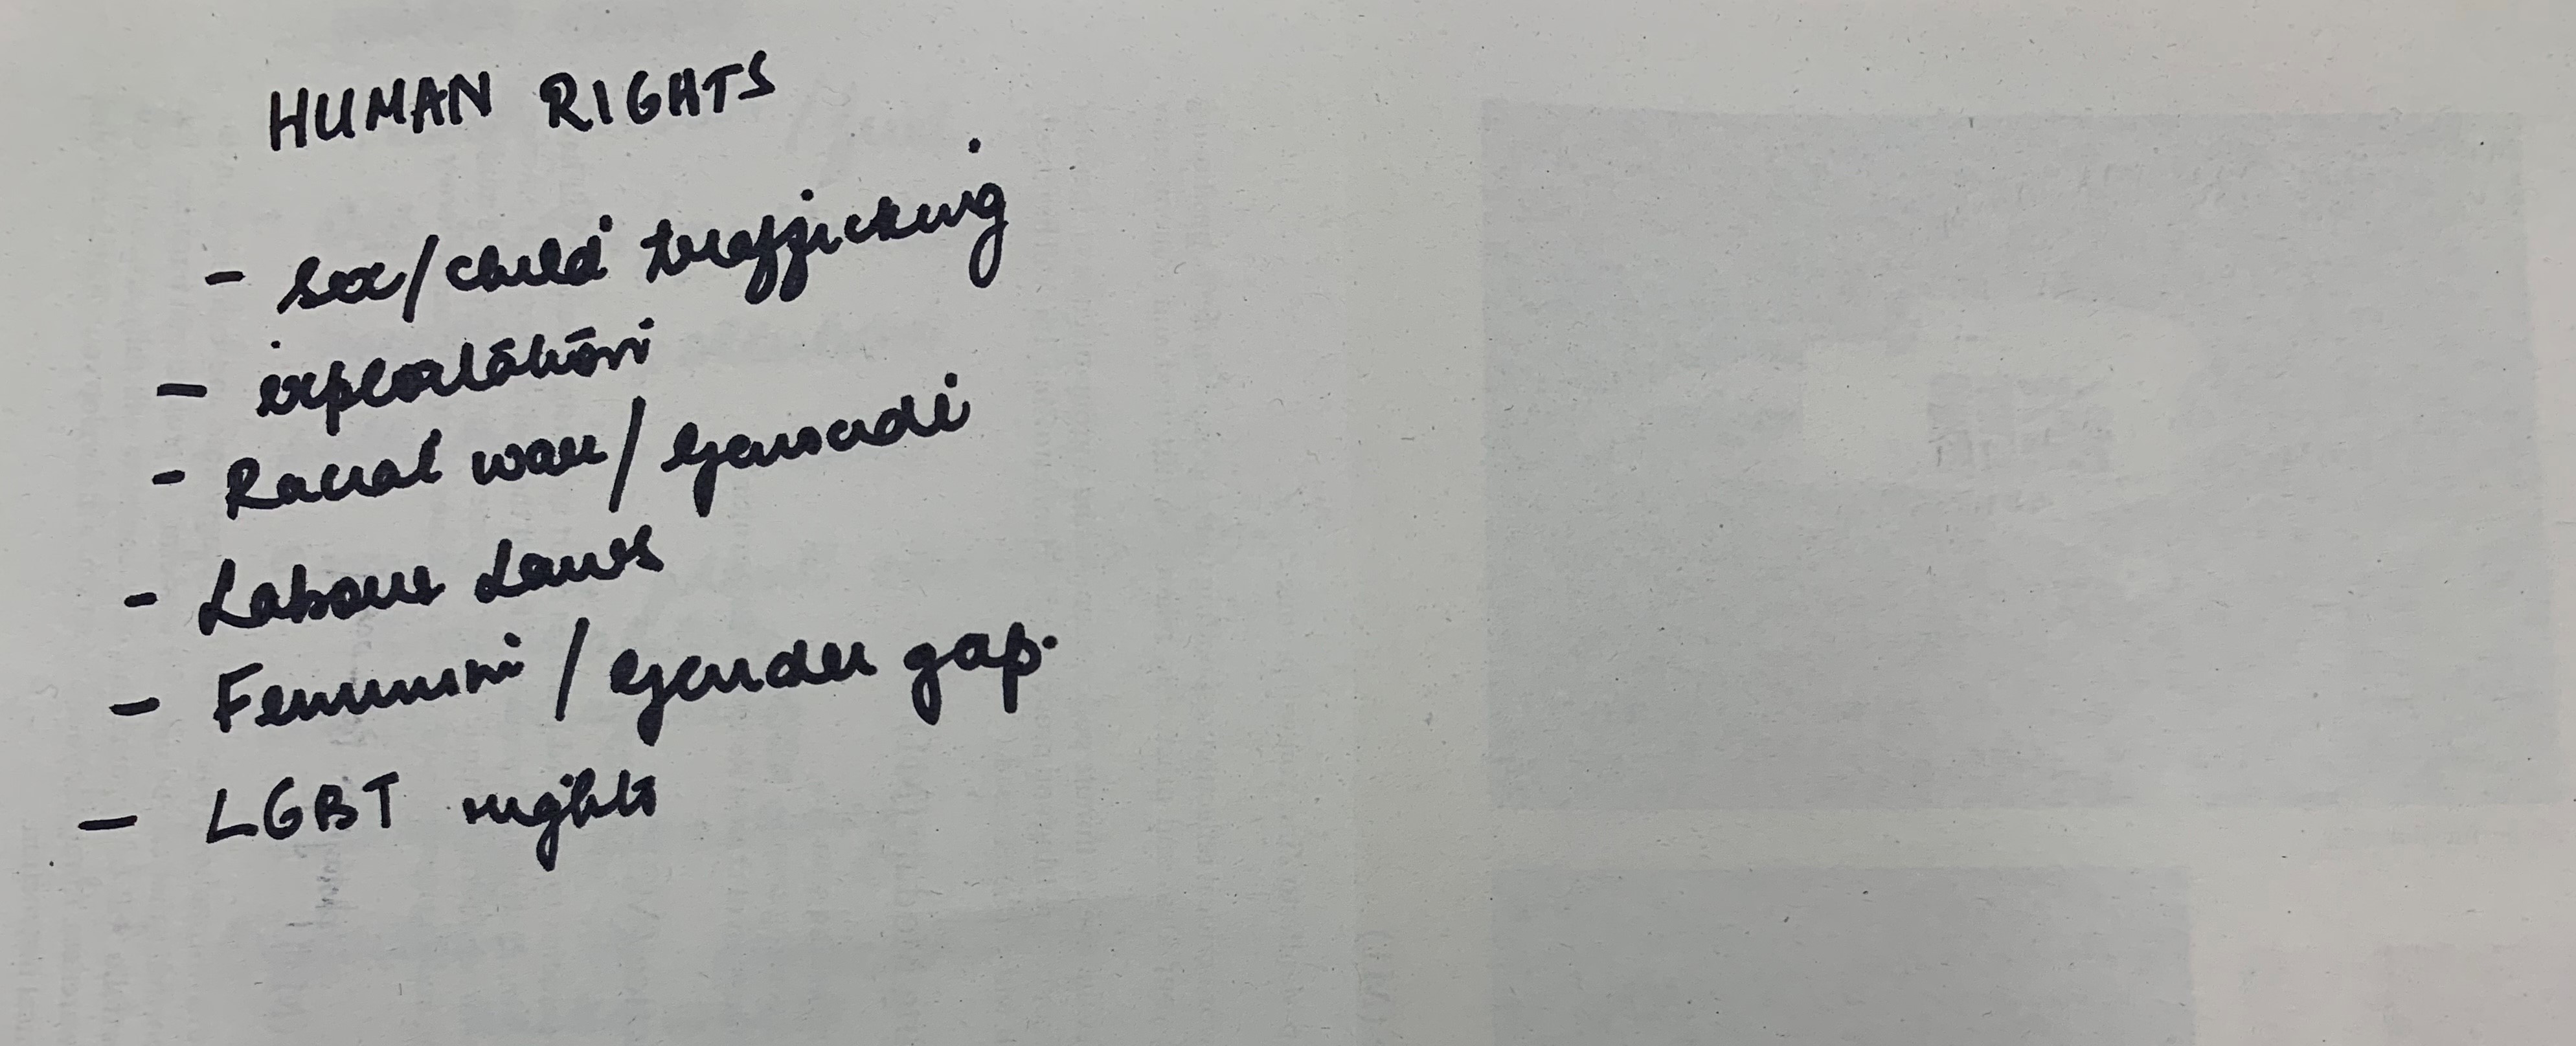 HUMAN RIGHTS
- sex/child trafficking
- exploatation
- Racial war/
- Labour Laws
- / Gender gap.
- LGBT rights